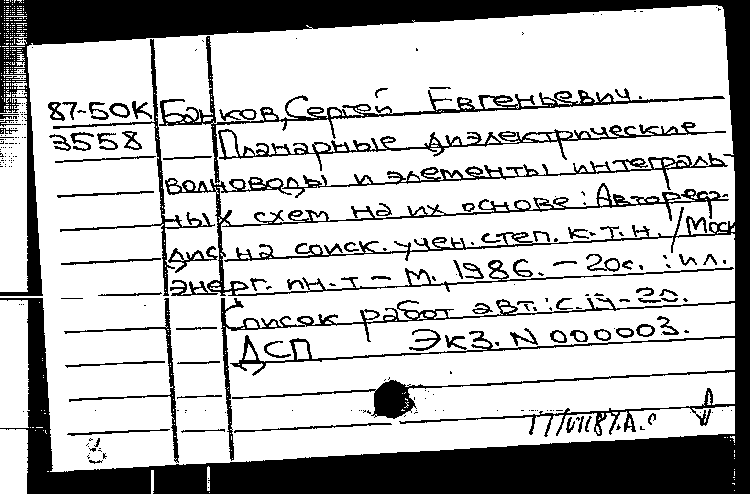 87-50К Банков, Сергей Евгеньевич.
3558 Планарные диэлектрические
волноводы и элементы интеграль-
ных схем на их основе: Автореф.
дис. на соиск. учен. степ. к.т.н. /Моск
энерг. ин-т – М., 1986. – 20с. : ил.
Список работ авт.: с. 19-20.
ДСП Экз. N 000003.
8